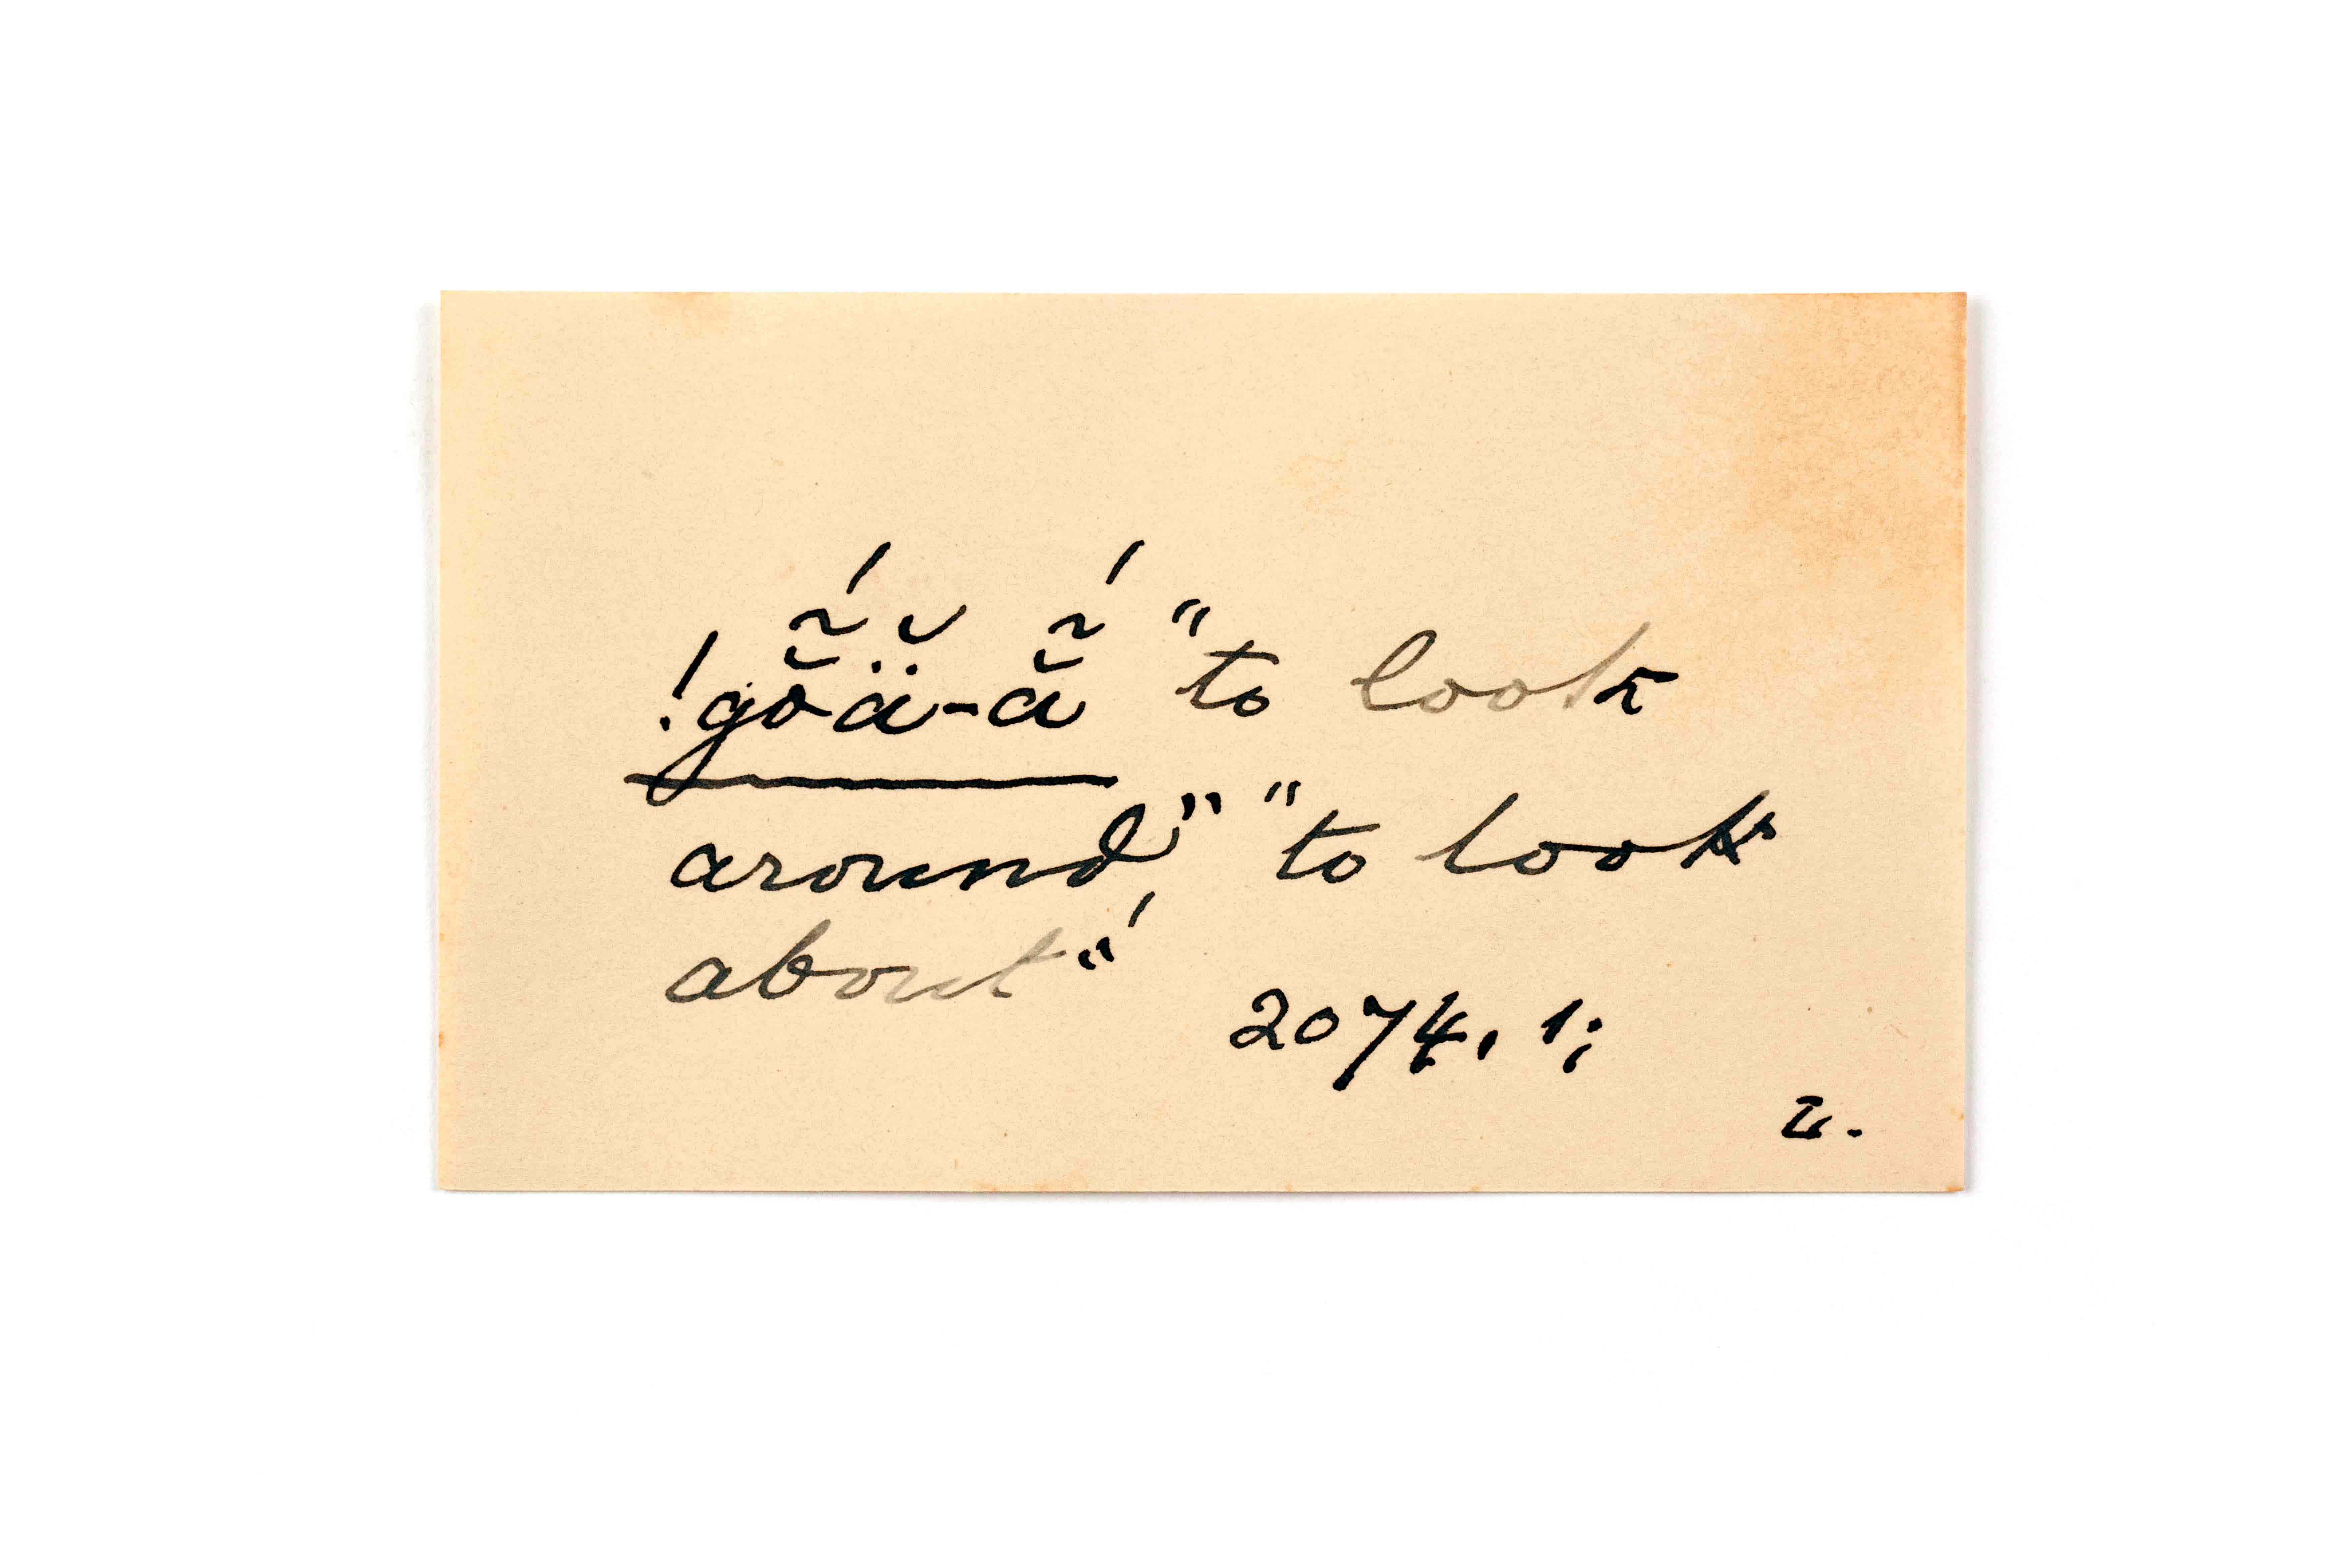 !gŏ̃́ä̆-ẵ́ "to look
around," "to look
about"
2074, 1;